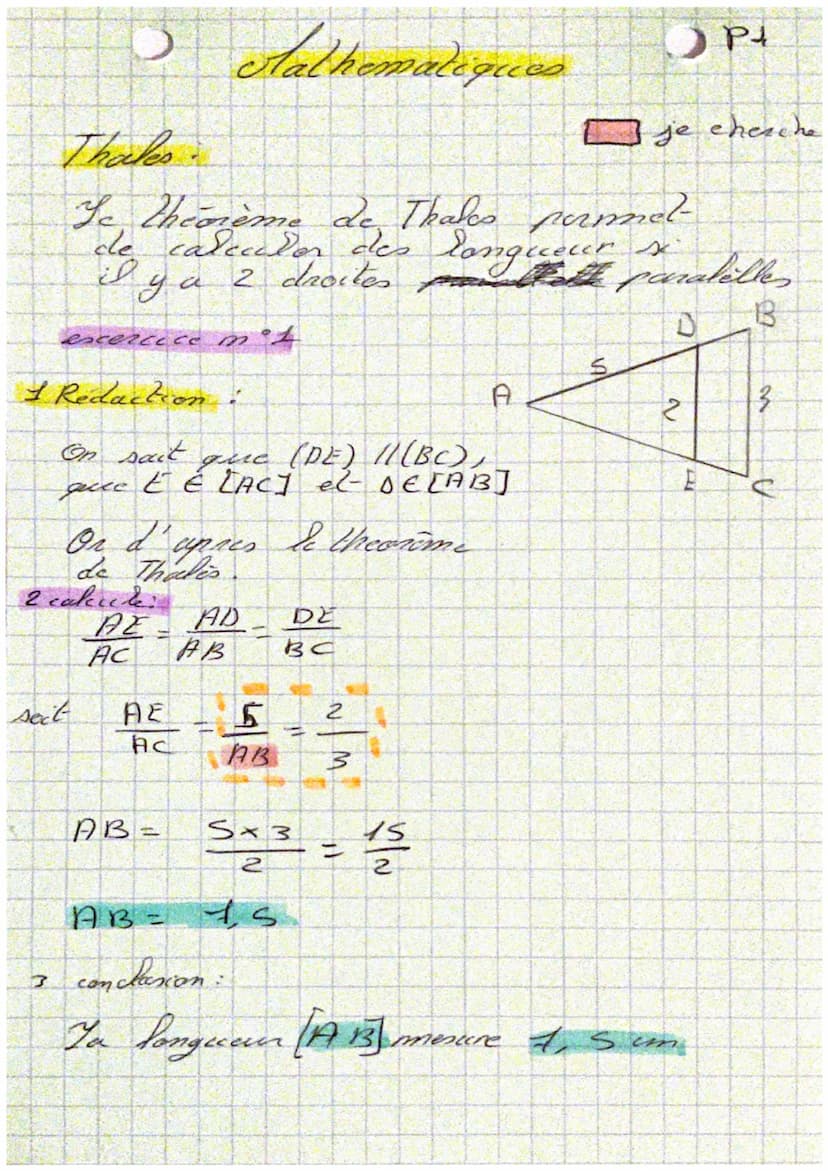 P1
Mathematiques
je cherche
Thales :
Le théorème de Thales permet
de calculer des longueur si
il y a 2 droites parallèles
exercice n°1
1 Rédaction :
D B
A 5 2 3
E C
On sait que (DE) //(BC),
que E ∈ [AC] et D∈[AB]
Or d'apres le theorème
de Thalès.
2 calcule:
AE/AC = AD/AB = DE/BC
soit AE/AC = 5/AB = 2/3
AB = 5×3/2 = 15/2
AB = 7,5
3 conclusion :
La longueur [AB] mesure 7,5 cm